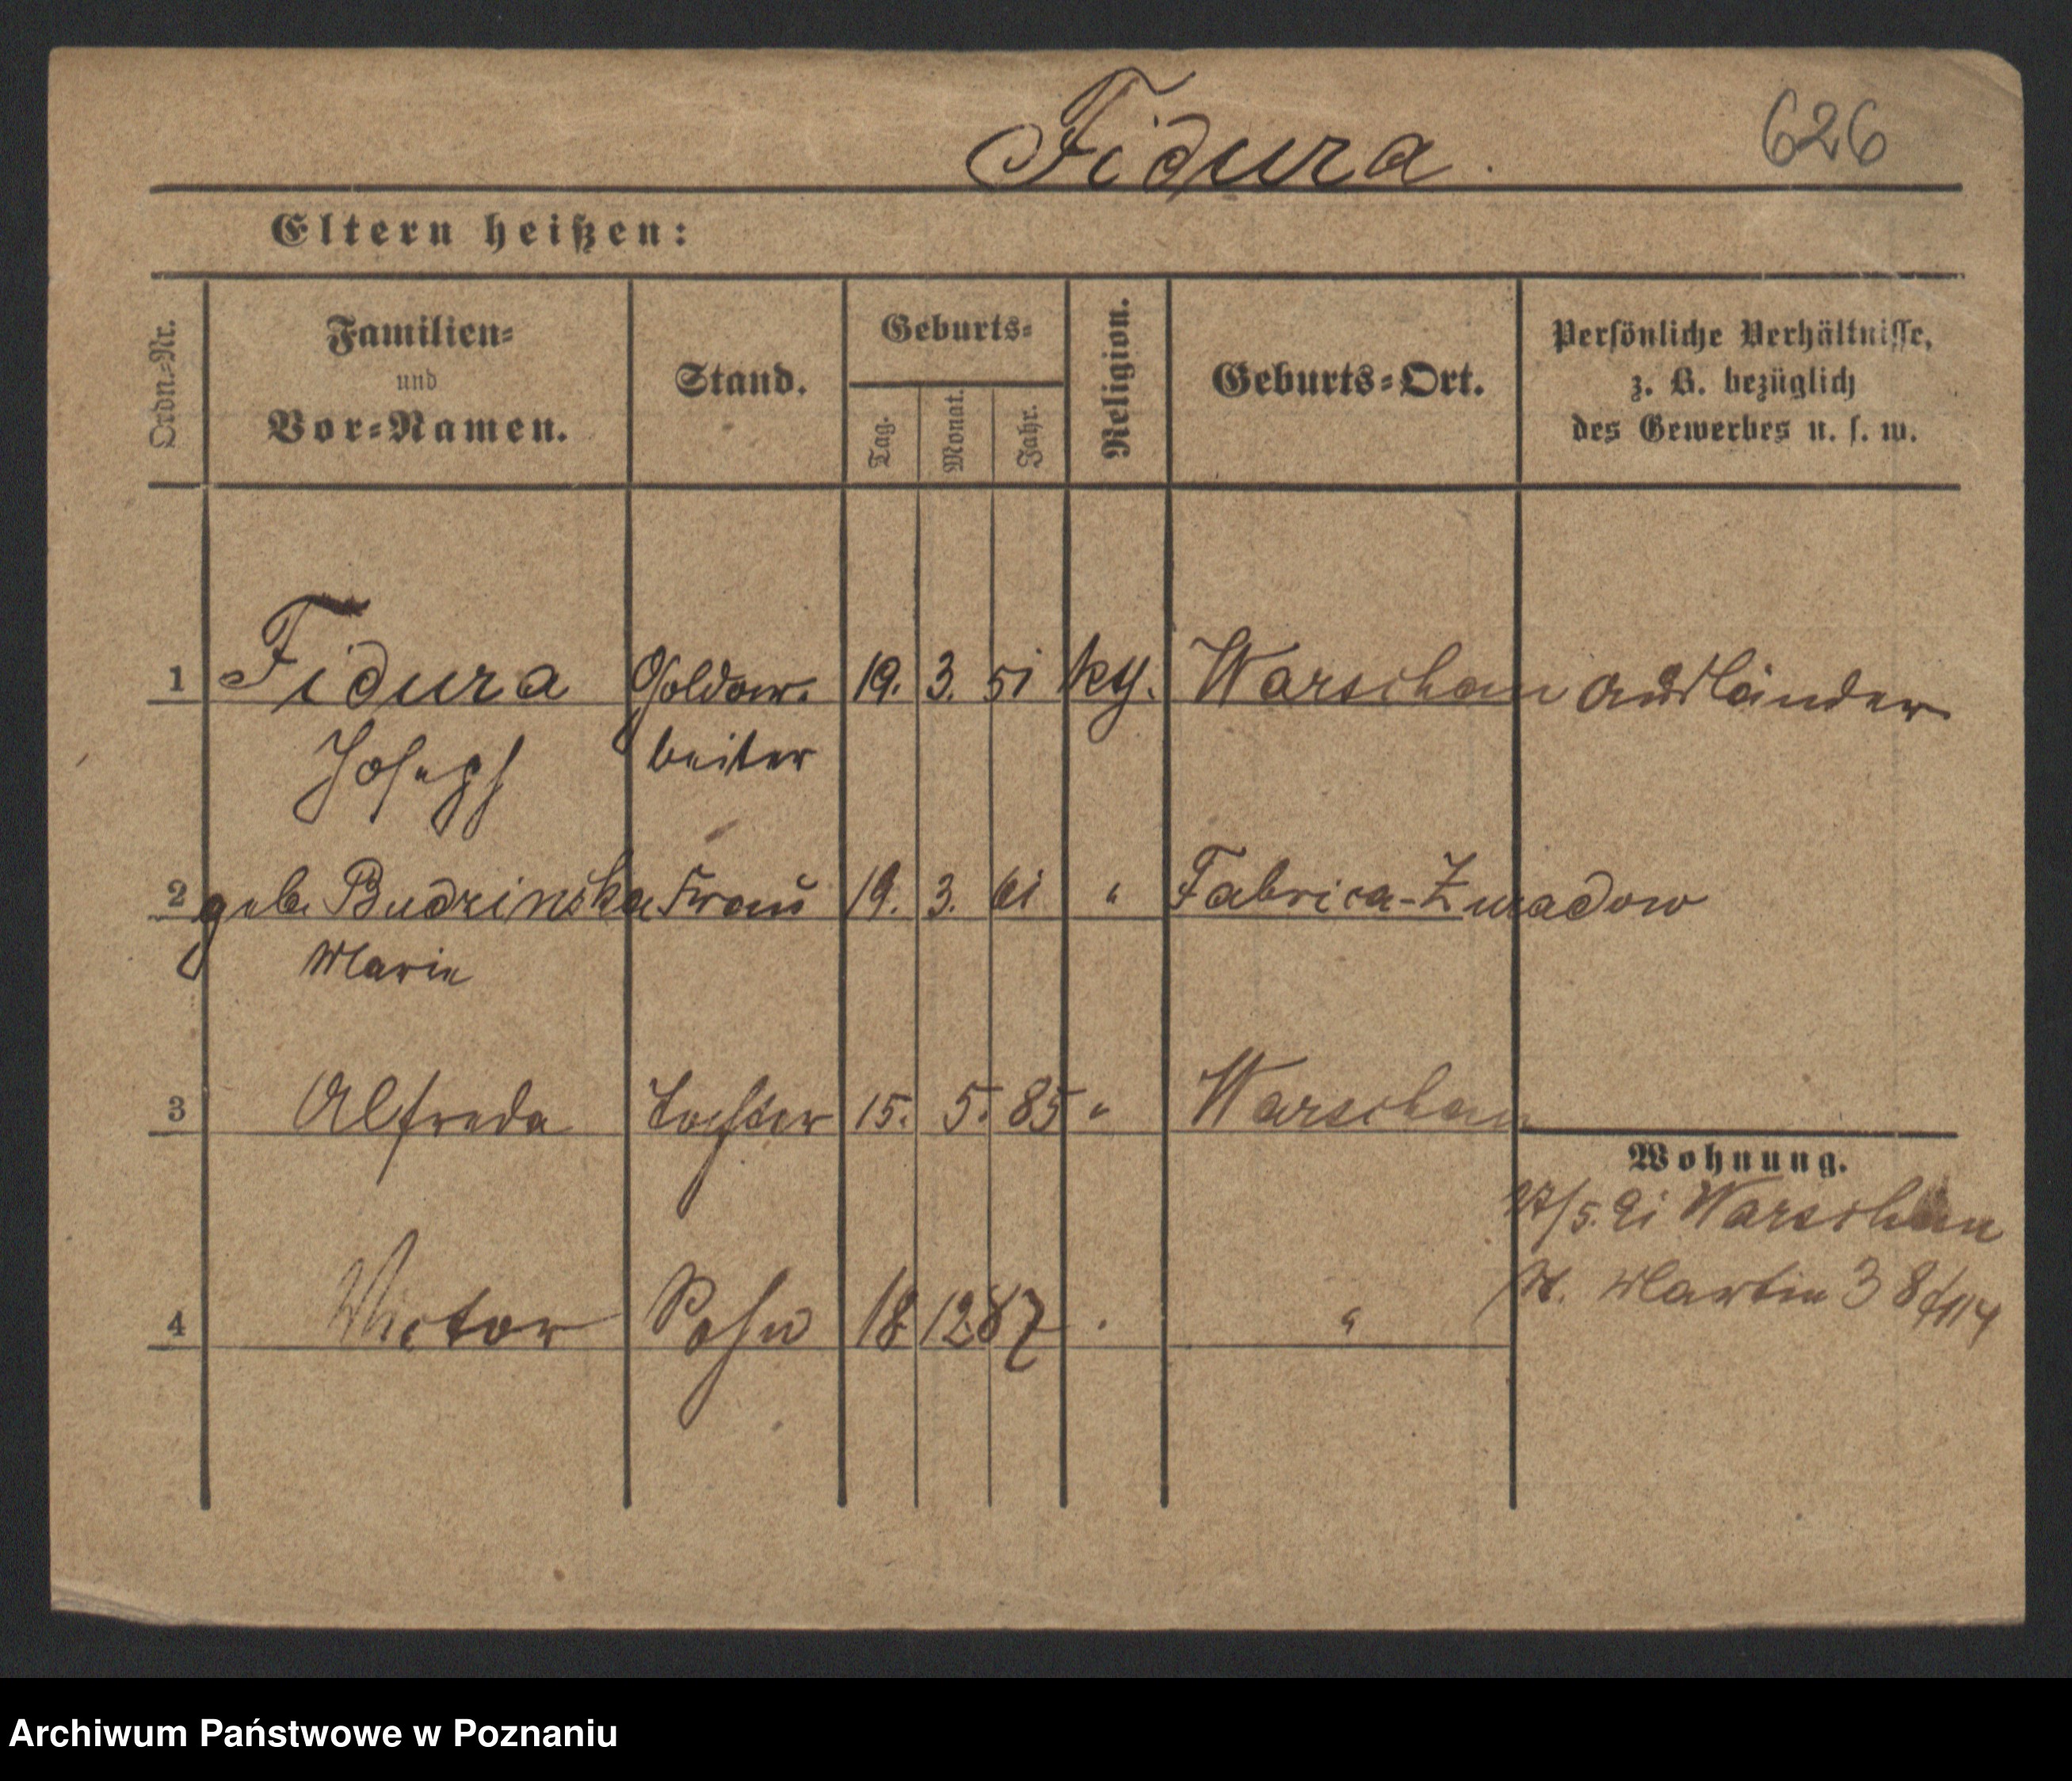 Fidura.
626
Eltern heißen:
Ordn.-Nr.
Familien-
und
Vor-Namen.
Stand.
Geburts-
Tag.
Monat.
Jahr.
Religion.
Geburts-Ort.
Persönliche Verhältnisse,
z. B. bezüglich
des Gewerbes u. s. w.
1 Fidura Goldar- 19. 3. 51 kth. Warschau Ausländer
Joseph beiter
2 geb. Budzinska Frau 19. 3. 61 " Fabrica-Zuradow
Marie
3 Alfreda Tochter 15. 5. 85 " Warschau
Wohnung.
/5. 91 Warschau
St. Martin 38
4 Victor Sohn 18 12 87 "
Archiwum Państwowe w Poznaniu